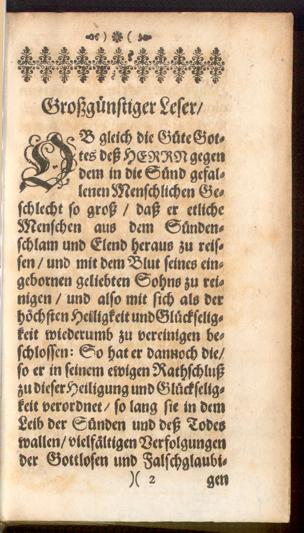 Großgünstiger Leser/
OB gleich die Güte Got-
tes deß HERRN gegen
dem in die Sünd gefal-
lenen Menschlichen Ge-
schlecht so groß / daß er etliche
Menschen aus dem Sünden-
schlam und Elend heraus zu reis-
sen / und mit dem Blut seines ein-
gebornen geliebten Sohns zu rei-
nigen / und also mit sich als der
höchsten Heiligkeit und Glückselig-
keit wiederumb zu vereinigen be-
schlossen: So hat er dannoch die/
so er in seinem ewigen Rathschluß
zu dieser Heiligung und Glückselig-
keit verordnet / so lang sie in dem
Leib der Sünden und deß Todes
wallen/ vielfältigen Verfolgungen
der Gottlosen und Falschglaubi-
)( 2 gen